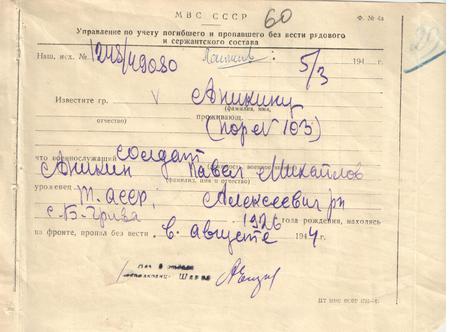 МВС СССР
60
Ф. № 4а
Управление по учету погибшего и пропавшего без вести рядового
и сержантского состава
29
Наш. исх. №
5/3
194 г.
Известите гр. V Аникину
(фамилия, имя,
отчество)
проживающ.
(пор № 103)
что военнослужащий солдат
Аникин Павел Михайлов
(фамилия, имя и отчество)
уроженец Т. АССР, Алексеевш рн
с. Б-Грива 1926 года рождения, находясь
на фронте, пропал без вести в августе 1944 г.